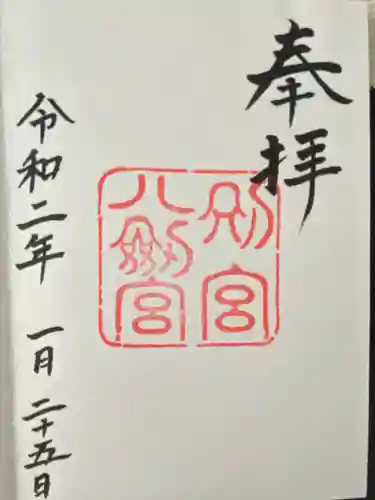 奉拝
別宮
八剱宮
令和二年 一月二十五日